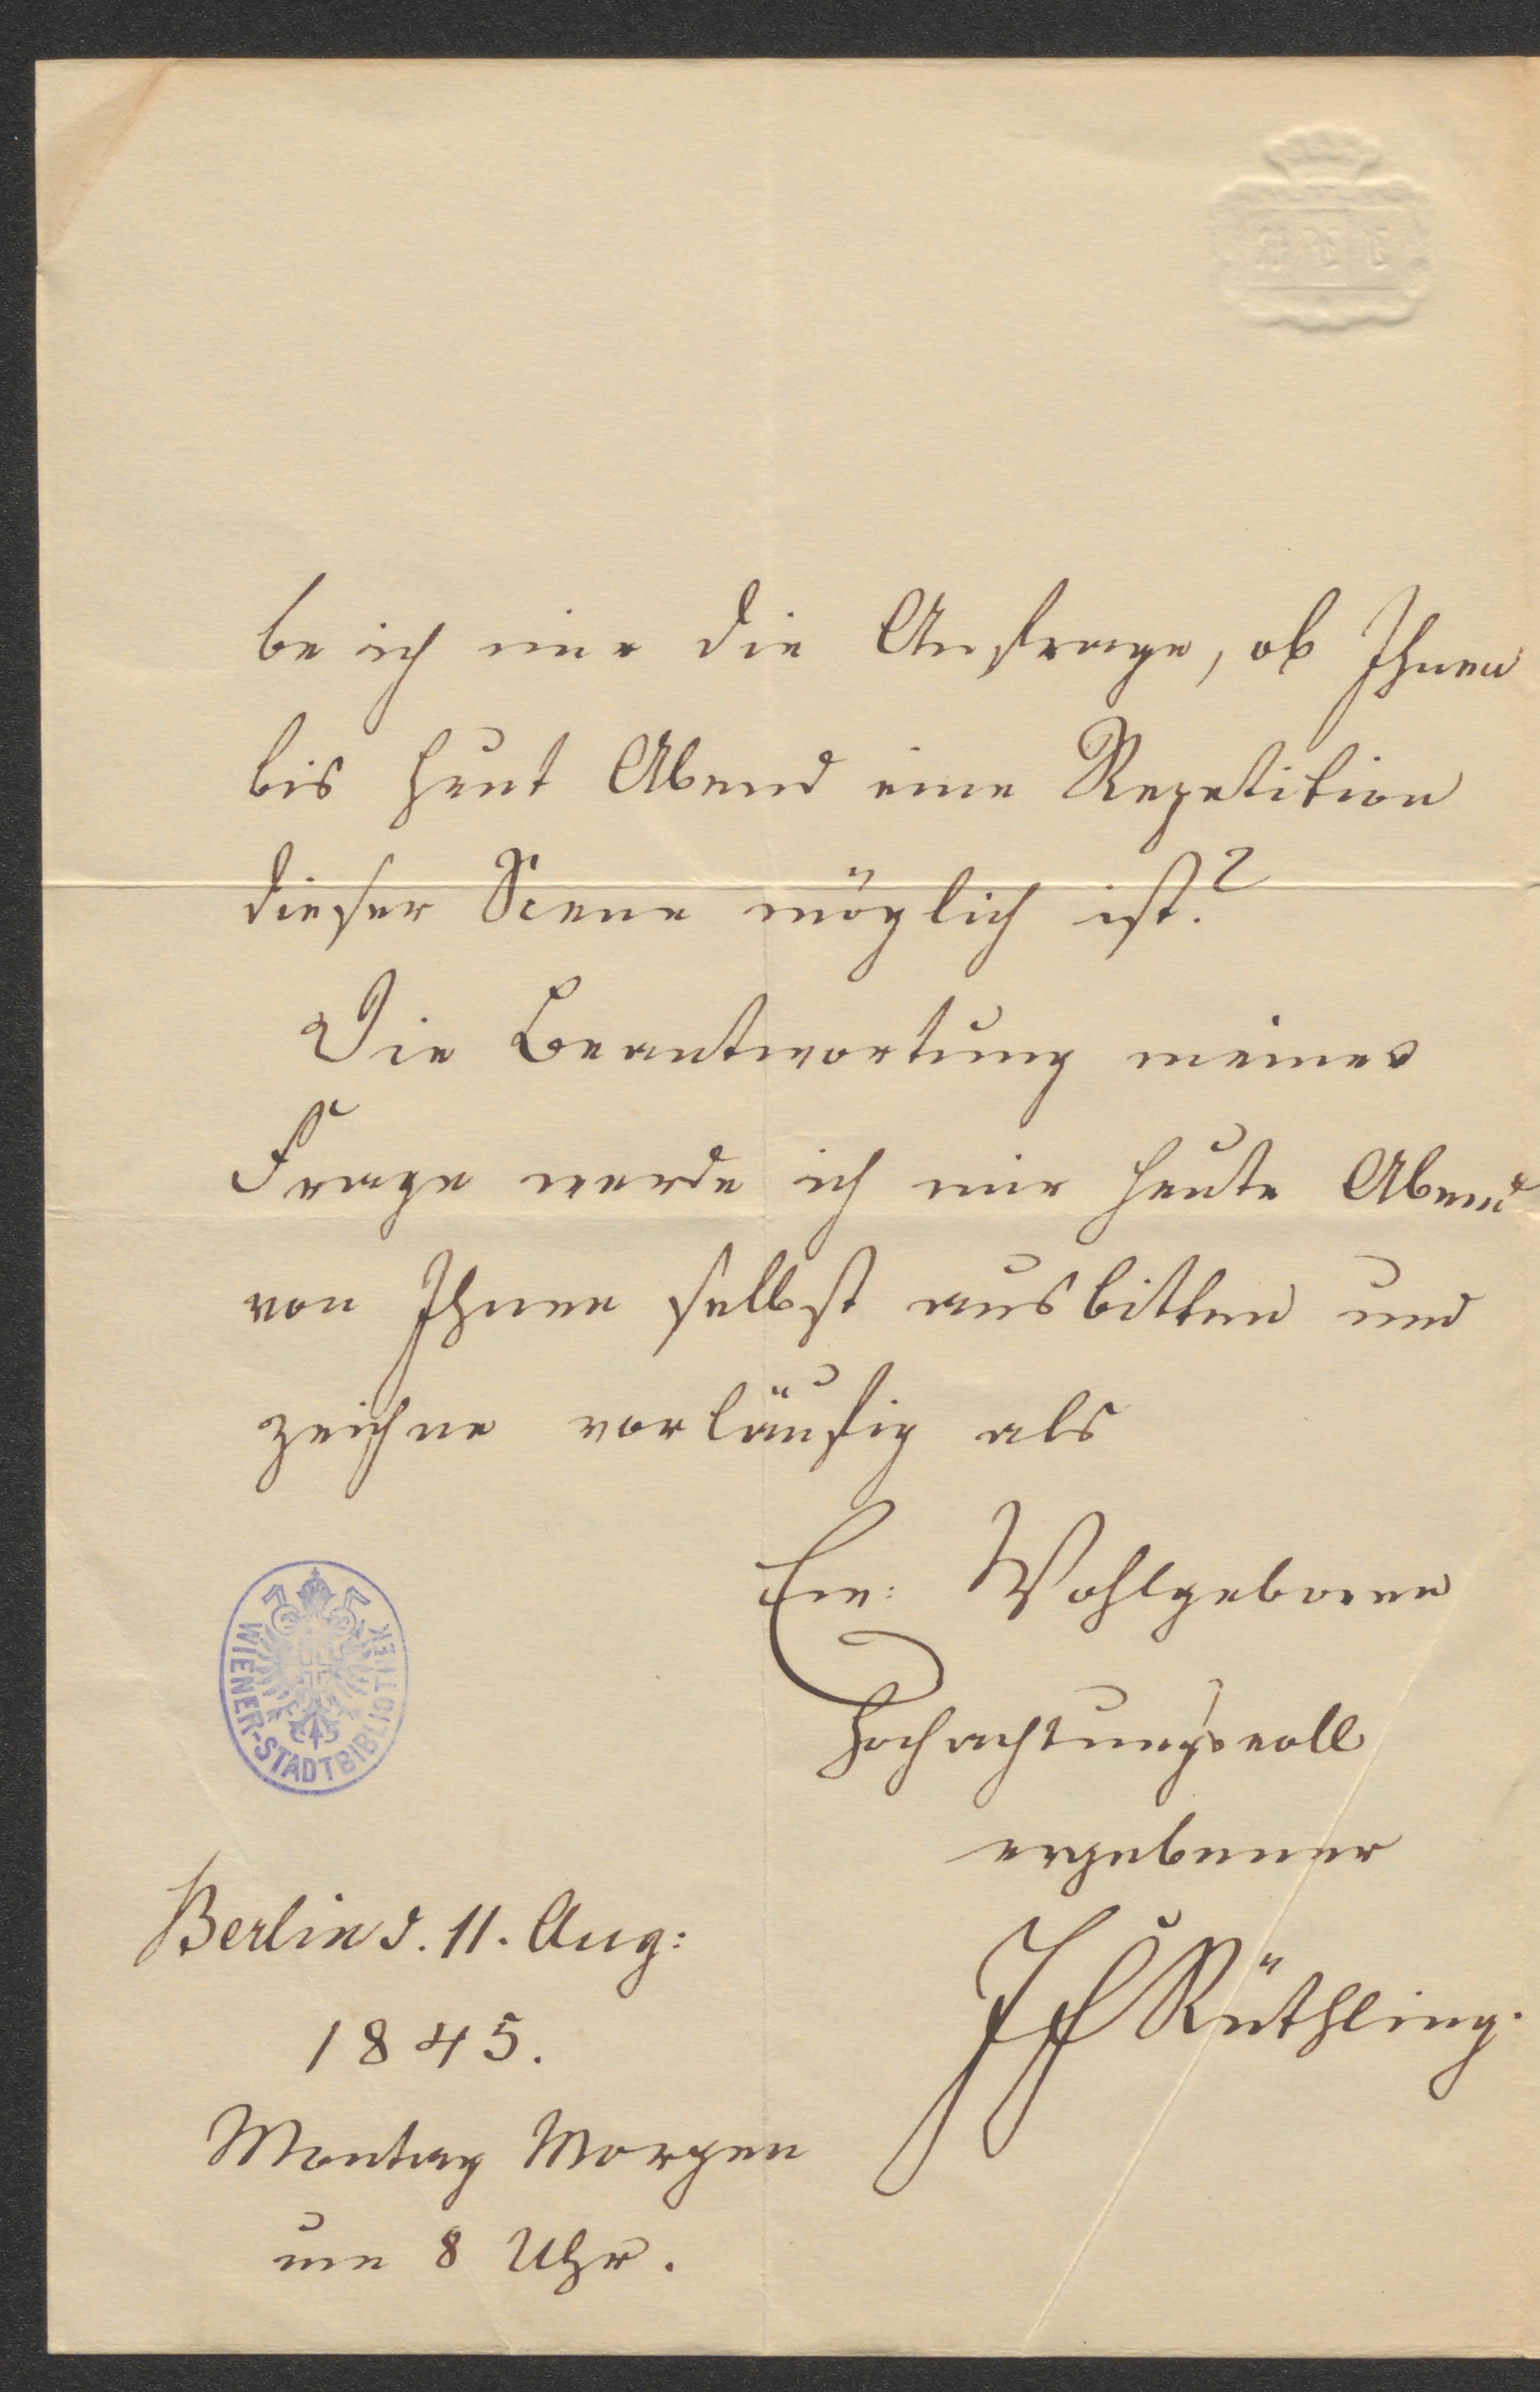 be ich mir die Anfrage, ob Ihnen
bis heut Abend eine Repetition
dieser Scene möglich ist?
Die Beantwortung meiner
Frage werde ich mir heute Abend
von Ihnen selbst ausbitten und
zeichne vorläufig als
Ew: Wohlgeboren
hochachtungsvoll
ergebener
Rüthling.
Berlin d. 11. Aug:
1845.
Montag Morgen
um 8 Uhr.
WIENER-STADTBIBLIOTHEK